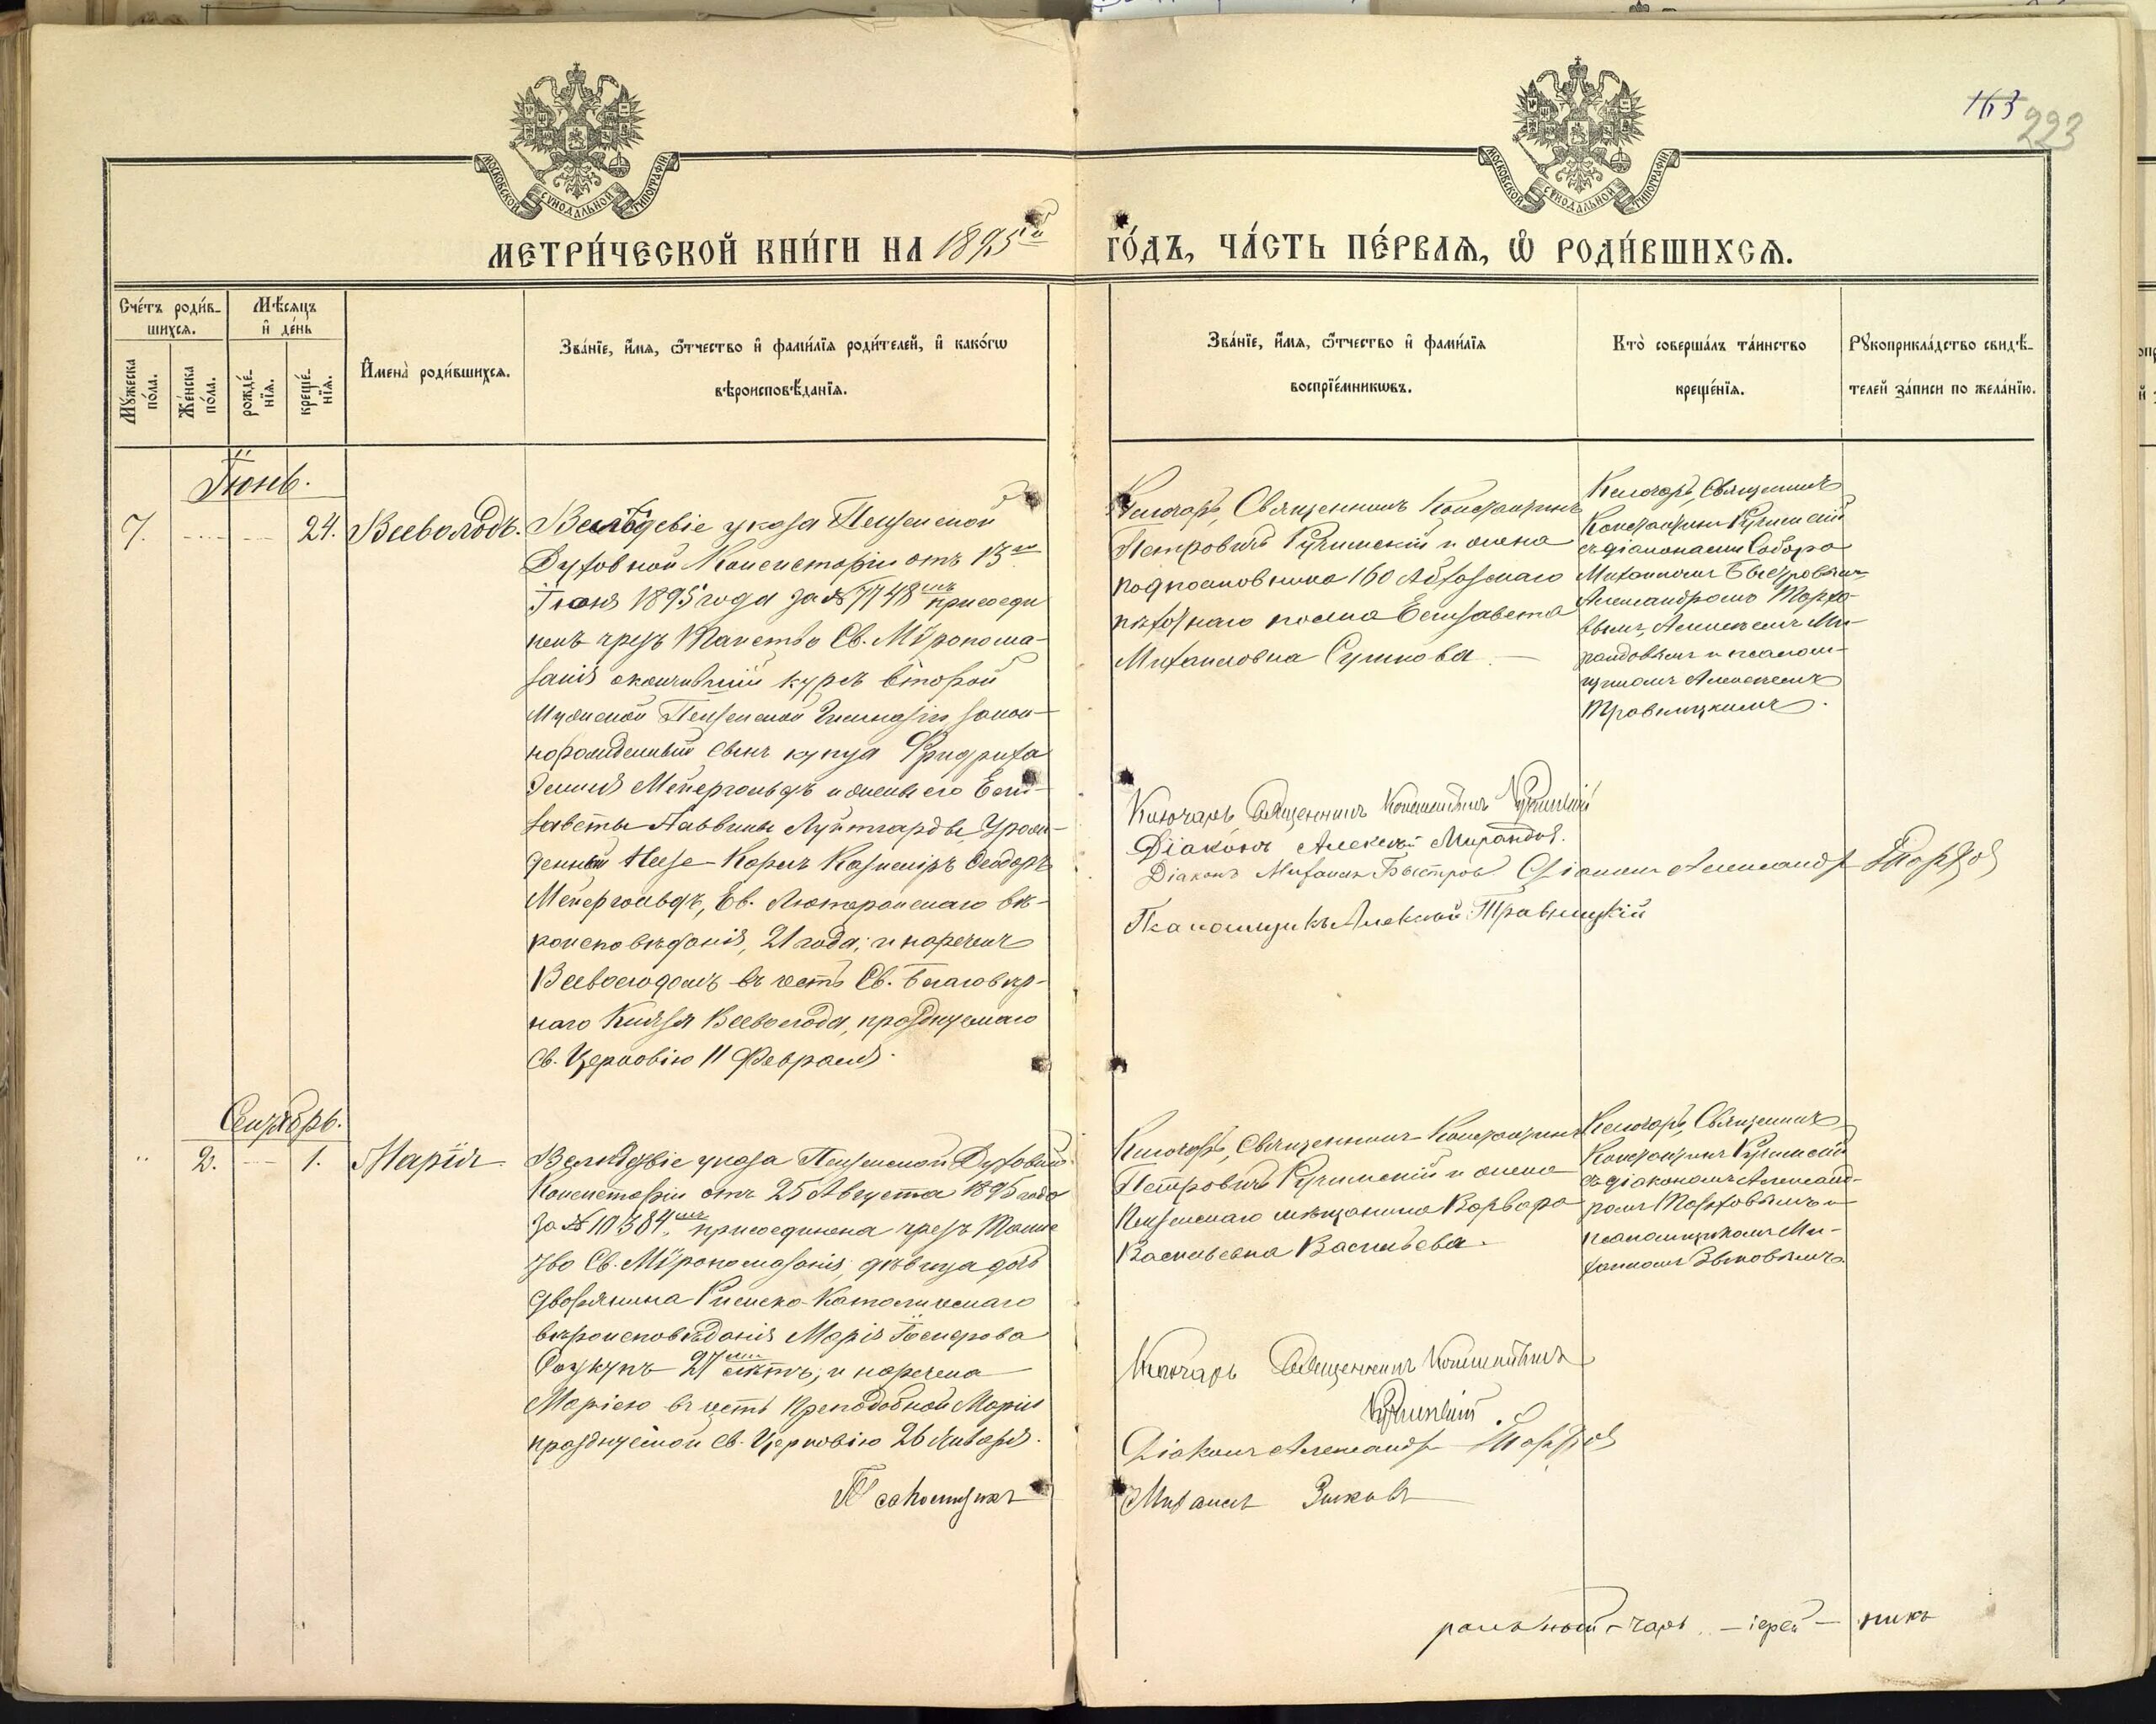 163
223
МОСКОВСКОЙ СѴНОДАЛЬНОЙ ТИПОГРАФІИ
МОСКОВСКОЙ СѴНОДАЛЬНОЙ ТИПОГРАФІИ
МЕТРИ́ЧЕСКОЙ КНИ́ГИ НА 1895й ГО́ДЪ, ЧА́СТЬ ПЕ́РВАѦ, Ѡ РОДИ́ВШИХСѦ.
Сче́тъ роди́в-
шихсѧ.
Мꙋ́жеска по́ла.
Же́нска по́ла.
Мѣ́сѧцъ
и де́нь
рожде́-нїѧ.
креще́-нїѧ.
Имена̀ роди́вшихсѧ.
Зва́нїе, и́мѧ, ѻ́тчество и фами́лїѧ роди́телей, и како́гѡ
вѣроисповѣ́данїѧ.
Зва́нїе, и́мѧ, ѻ́тчество и фами́лїѧ
воспрїе́мникѡвъ.
Кто̀ соверша́лъ та́инство
креще́нїѧ.
Рꙋкоприкла́дство свидѣ́-
телей за́писи по жела́нїю.
Іюнь.
7. 24. Всеволодъ.
Вслѣдствіе указа Пензенской
Духовной Консисторіи отъ 13го
Іюня 1895 года за № 7748мъ присоеди
ненъ чрезъ Таинство Св. Мѵропома-
занія окончившій курсъ Второй
Мужской Пензенской Гимназіи закон-
норожденный сынъ купца Фридриха
Эмилія Мейергольдъ и жены его Ели-
заветы Альвины Луитгарды, Урож-
денной Неезе – Карлъ Казимиръ Теодоръ
Мейергольдъ, Ев. Лютеранскаго вѣ-
роисповѣданія, 21 года; и нареченъ
Всеволодомъ въ честь Св. Благовѣр-
наго Князя Всеволода, празднуемаго
Св. Церковію 11 Февраля.
Ключарь, Священникъ Константинъ
Петровичъ Кучинскій и жена
подполковника 160 Абхазскаго
пѣхотнаго полка Елизавета
Михаиловна Сушкова. –
Ключарь, Священникъ
Константинъ Кучинскій
съ діаконами Собора
Михаиломъ Быстровымъ,
Александромъ Торхо-
вымъ, Алексѣемъ Ми-
рандовымъ и псалом-
щикомъ Алексѣемъ
Травницкимъ.
Ключарь Священникъ Константинъ Кучинскій
Діаконъ Алексѣй Мирандовъ.
Діаконъ Михаилъ Быстровъ Діаконъ Александръ Торховъ
Псаломщикъ Алексѣй Травницкій
Сентябрь.
2. 1. Марія.
Вслѣдствіе указа Пензенской Духовной
Консисторіи отъ 25 Августа 1895 года
за № 10384мъ присоединена чрезъ Таинс
тво Св. Мѵропомазанія, дѣвица дочь
дворянина Римско-Католическаго
вѣроисповѣданія Марія
27ми лѣтъ; и наречена
Маріею въ честь преподобной Маріи
празднуемой Св. Церковію 26 Января.
Ключарь, Священникъ Константинъ
Петровичъ Кучинскій и жена
Пензенскаго мѣщанина Варвара
Васильевна Васильева.
Ключарь, Священникъ
Константинъ Кучинскій
съ діакономъ Александ-
ромъ Торховымъ и
псаломщикомъ Ми-
хаиломъ Зыковымъ.
Ключарь Священникъ Константинъ
Кучинскій
Діаконъ Александръ Торховъ
Псаломщикъ Михаилъ Зыковъ
ральный – чарь – іерей – никъ